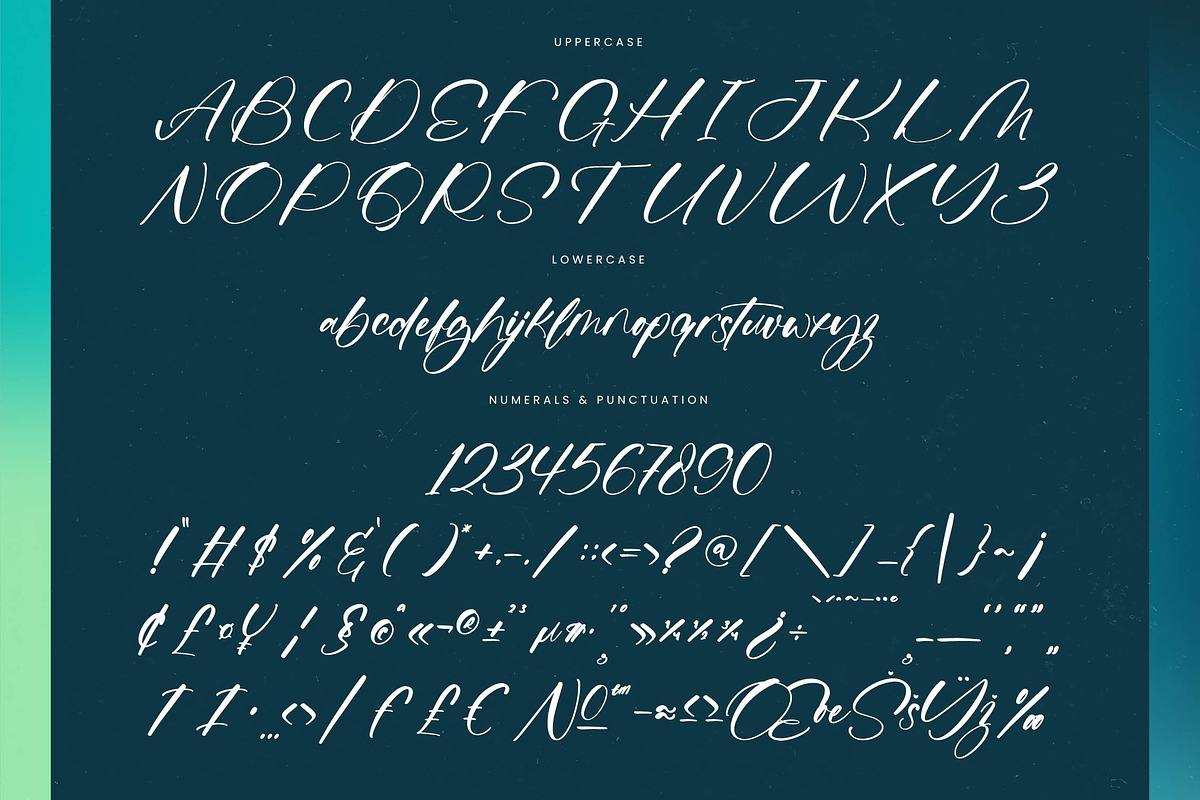 UPPERCASE
ABCDEFGHIJKLM
NOPQRSTUVWXYZ
LOWERCASE
abcdefghijklmnopqrstuvwxyz
NUMERALS & PUNCTUATION
1234567890
!"#$%&'()*+,-./:;<=>?@[\]_{|}~¡
¢£¤¥¦§©ª«¬®±²³µ¶·¸¹º»¼½¾¿÷–—‘’“”„
†‡•…‹›⁄ƒ₤€№™−≈≤≥ŒœŠšŸž‰